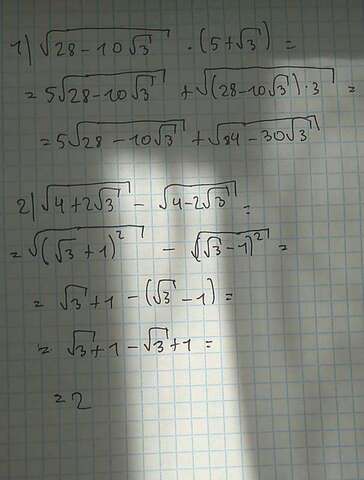 1) √28-10√3 · (5+√3) =
= 5√28-10√3 + √(28-10√3)·3 =
= 5√28-10√3 + √84-30√3
2) √4+2√3 - √4-2√3 =
= √(√3+1)² - √(√3-1)² =
= √3+1-(√3-1) =
= √3+1-√3+1 =
= 2